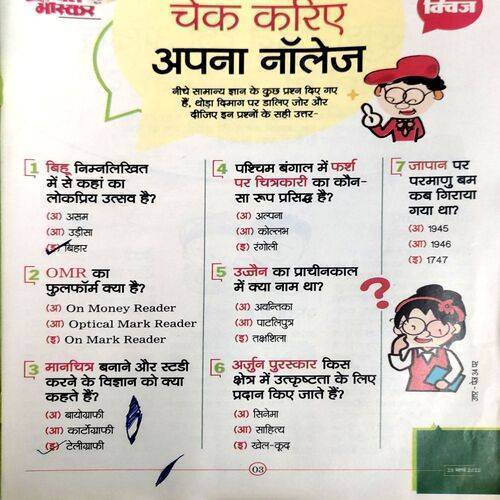 भास्कर
क्विज
चेक करिए
अपना नॉलेज
नीचे सामान्य ज्ञान के कुछ प्रश्न दिए गए
हैं, थोड़ा दिमाग पर डालिए जोर और
दीजिए इन प्रश्नों के सही उत्तर-
1 बिहू निम्नलिखित
में से कहां का
लोकप्रिय उत्सव है?
(अ) असम
(आ) उड़ीसा
(इ) बिहार
2 OMR का
फुलफॉर्म क्या है?
(अ) On Money Reader
(आ) Optical Mark Reader
(इ) On Mark Reader
3 मानचित्र बनाने और स्टडी
करने के विज्ञान को क्या
कहते हैं?
(अ) बायोग्राफी
(आ) कार्टोग्राफी
(इ) टेलीग्राफी
4 पश्चिम बंगाल में फर्श
पर चित्रकारी का कौन-
सा रूप प्रसिद्ध है?
(अ) अल्पना
(आ) कोल्लभ
(इ) रंगोली
5 उज्जैन का प्राचीनकाल
में क्या नाम था?
(अ) अवन्तिका
(आ) पाटलिपुत्र
(इ) तक्षशिला
6 अर्जुन पुरस्कार किस
क्षेत्र में उत्कृष्टता के लिए
प्रदान किए जाते हैं?
(अ) सिनेमा
(आ) साहित्य
(इ) खेल-कूद
7 जापान पर
परमाणु बम
कब गिराया
गया था?
(अ) 1945
(आ) 1946
(इ) 1747
?
03